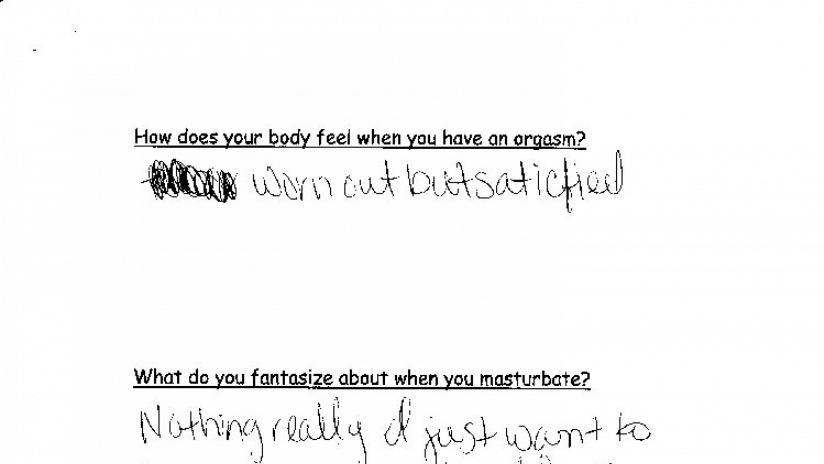 How does your body feel when you have an orgasm?
worn out but saticfied
What do you fantasize about when you masturbate?
Nothing really I just want to